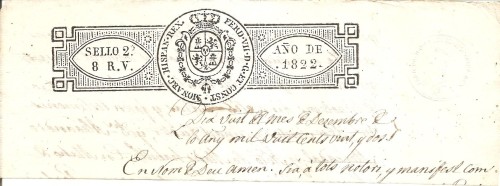 SELLO 2º
8 R.V.
FERD·VII·D·G·ET CONST·MONARC·HISPAN·REX·
AÑO DE
1822.
Dia vuit del mes de Decembre de
lo Any mil vuitcents vint, y dos.
En Nom de Deu amen. Sia à tots notori, y manifest com